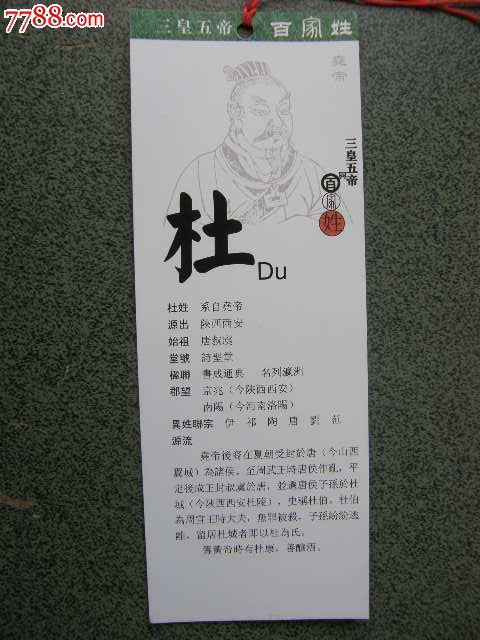 7788.com
三皇五帝 百家姓
堯帝
三皇五帝
與
百家姓
杜
Du
杜姓 系自堯帝
源出 陝西西安
始祖 唐叔虞
堂號 詩聖堂
楹聯 書成通典 名列瀛洲
郡望 京兆（今陝西西安）
南陽（今河南洛陽）
異姓聯宗 伊 祁 陶 唐 劉 范
源流
堯帝後裔在夏朝受封於唐（今山西
翼城）為諸侯，至周武王時唐侯作亂，平
定後成王封叔虞於唐，並遷唐侯子孫於杜
城（今陝西西安杜陵），史稱杜伯，杜伯
為周宣王時大夫，無罪被殺，子孫紛紛逃
離，留居杜城者即以杜為氏。
傳黃帝時有杜康，善釀酒。